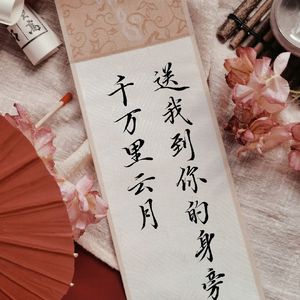 送我到你的身旁
千万里云月